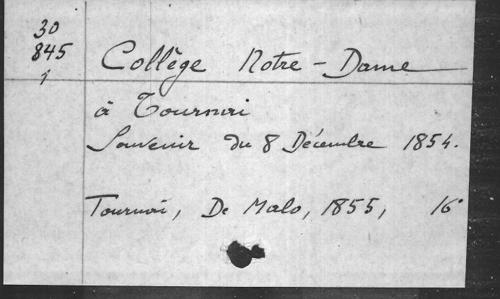 30
845
1
Collège Notre-Dame
à Tournai
Souvenir du 8 Décembre 1854.
Tournai, De Malo, 1855, 16°